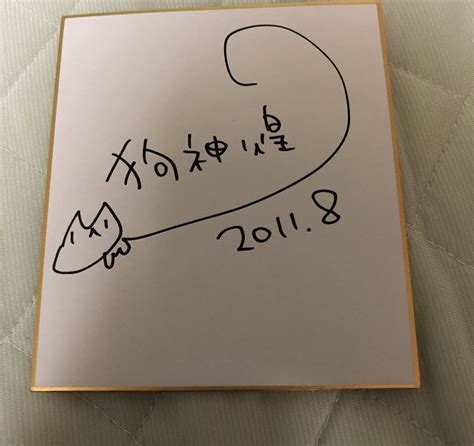 狗神煌
2011.8